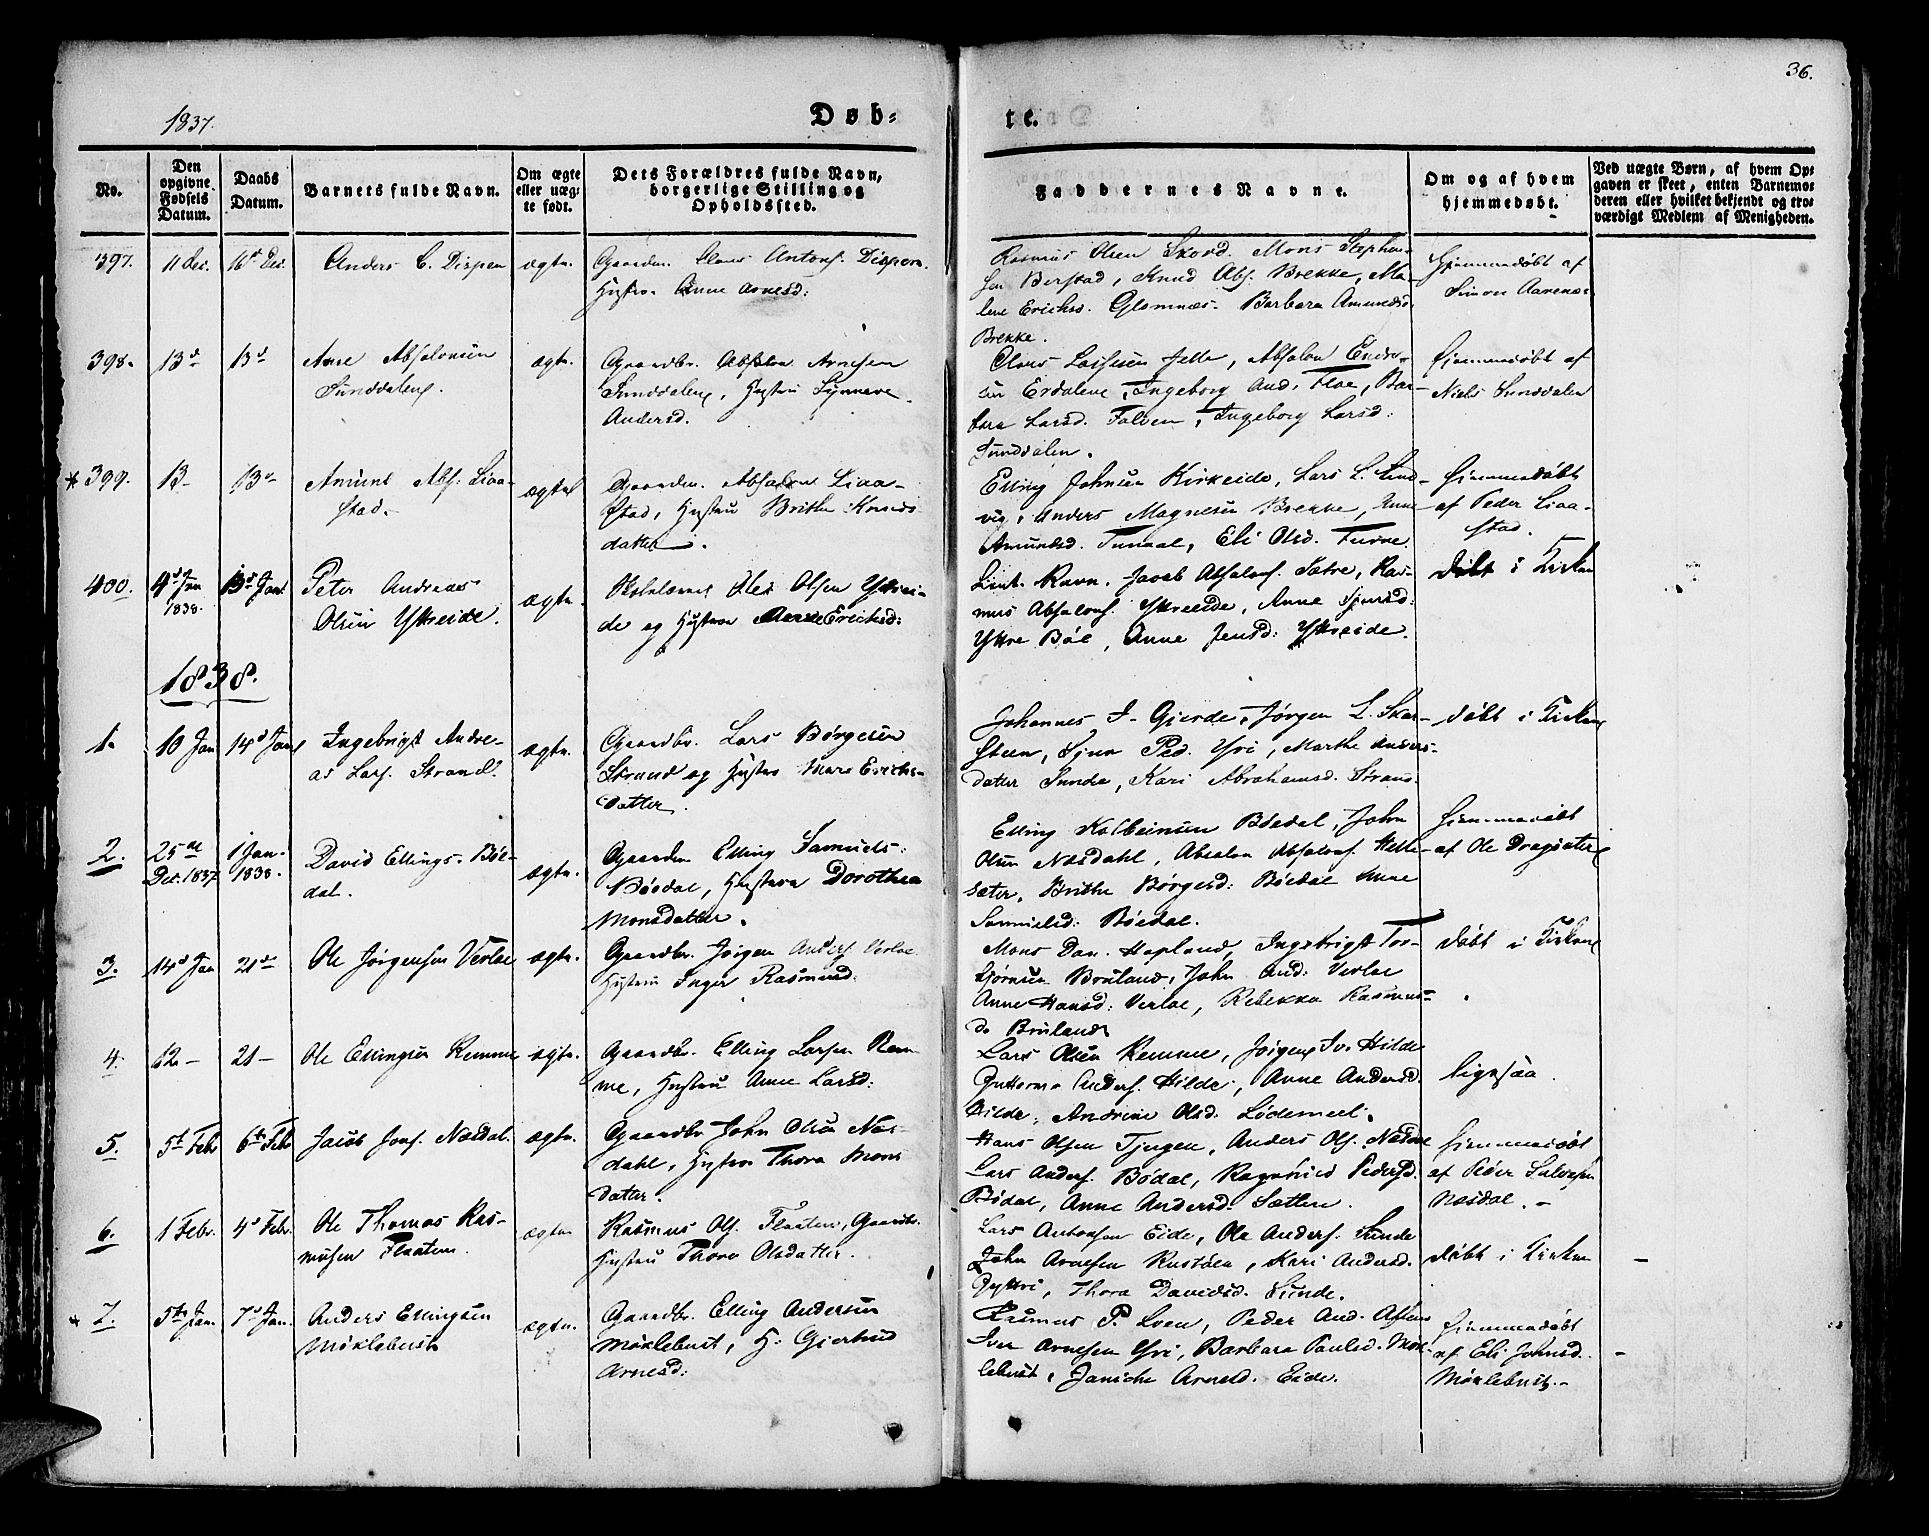 36.
1837.
Døb-
te.
No.
Den opgivne Fødsels Datum.
Daabs Datum.
Barnets fulde Navn.
Om ægte eller uægte født.
Dets Forældres fulde Navn, borgerlige Stilling og Opholdssted.
Faddernes Navne.
Om og af hvem hjemmedøbt.
Ved uægte Børn, af hvem Opgaven er skeet, enten Barnemoderen eller hvilket bekjendt og troværdigt Medlem af Menigheden.
397. 11 Dec. 16d Dec. Anders C. Dispen ægte.
Gaardm. Claus Antonf. Dispen.
Hustro Anne Arnesd:
Rasmus Olsen Skord. Mons Stephen-
sen Berstad, Knud Abs. Brekke, Ma-
lene Erichsd. Glomnæs. Barbara Amundsd.
Brekke.
Hjemmedøbt af
Simon Aarenæs
398. 13d 13d Anne Absalonsen
Sunddalen.
ægte.
Gaardbr. Absalon Arnesen
Sunddalen, Hustru Synneve
Andersd.
Claus Lassesen Jelle, Absalon Endre-
sen Erdalene, Ingeborg And. Floe, Bar-
bara Larsd. Folven, Ingeborg Larsd:
Sunddalen.
Hjemmedøbt af
Niels Sunddalen
* 399. 13 13d Amund Abs. Liaa-
stad.
ægte
Gaardm. Absalon Liaa-
stad, Hustru Brithe Knuds
datter.
Elling Johnsen Kirkeide, Lars L. Sand-
vig, Anders Magnesen Brekke, Anne
Amundsd. Tunaal, Eli Olsd. Furne.
Hjemmedøbt
af Peder Liaa-
stad.
400. 4d Jan 1838. 13d Jan Peter Andreas
Olsen Yttreide.
ægte.
Skolelærer Ole Olsen Yttrei-
de og Hustro Marte Erichsd:
Lieut. Ravn. Jacob Absalonf. Sætre, Ras-
mus Absalonf. Yttreeide, Anne Sjursd:
Yttre Bøe, Anne Jensd: Yttreide.
døbt i Kirken
1838.
1. 10 Jan 14d Jan Ingebrigt Andre-
as Lars. Strand.
ægte.
Gaardbr. Lars Børgesen
Strand og Hustro Mari Erichs-
datter.
Johannes I. Gjerde, Jørgen L. Skar-
steen, Sjur Ped. Yri, Marthe Anders-
datter Sunde, Kari Abrahamsd. Strand.
døbt i Kirken
2. 25de Dec. 1837 1 Jan. 1838. David Ellings. Bøe-
dal.
ægte.
Gaardm Elling Samuels:
Bøedal, Hustrue Dorothea
Monsdatter.
Elling Kolbeinsen Bøedal, John
Olsen Næsdahl, Absalon Absalonf. Helle-
sæter, Brithe Børgesd: Bøedal Anne
Samuelsd: Bøedal.
Hjemmedøbt
af Ole Dragsæter
3. 14d Jan 21de Ole Jørgensen Verloe ægte.
Gaardbr. Jørgen Andersf. Verloe
Hustru Inger Rasmusd.
Mons Dan. Hopland, Ingebrigt Tor-
bjørnsen Bruland, John And: Verloe
Anne Hansd: Verloe, Rebekka Rasmus-
d. Bruland
døbt i Kirken
4. 12 21 Ole Ellingsen Remme ægte.
Gaardbr. Elling Larsen Rem-
me, Hustru Anne Larsd:
Lars Olsen Remme, Jørgen Iv. Hilde
Guttorm Andersf. Hilde, Anne Andersd.
Hilde, Andrine Olsd. Lødemeel.
ligesaa.
5. 5t Febr 6te Febr Jacob Jonf. Næsdal. ægte.
Gaardbr John Olsen Næs-
dahl, Hustro Thora Mons
datter.
Hans Olsen Tjugen, Anders Ols. Næsdal
Lars Andersf. Bødal, Ragnhild Pedersd.
Bødal, Anne Andersd. Sætten.
Hjemmedøbt
af Peder Salvesen
Næsdal.
6. 1 Febr. 4d Febr. Ole Thomas Ras-
musen Flaaten.
ægte
Rasmus Ols. Flaaten, Gaardbr.
Hustru Thora Olsdatter.
Lars Antonsen Eide, Ole Andersf. Sunde
John Arnesen Rustøen, Kari Andersd.
Gyttri, Thora Davidsd. Sunde.
døbt i Kirken
* 7. 5te Jan. 7d Jan. Anders Ellingsen
Møklebust
ægte.
Gaardbr. Elling Andersen
Møklebust, H. Giertrud
Arnesd:
Rasmus P. Loen, Peder And. Aften
Iver Arnesen Yri, Barbara Paulsd. Møk-
lebust, Janiche Arnesd. Eide.
Hjemmedøbt
af Eli Johnsd.
Møklebust.